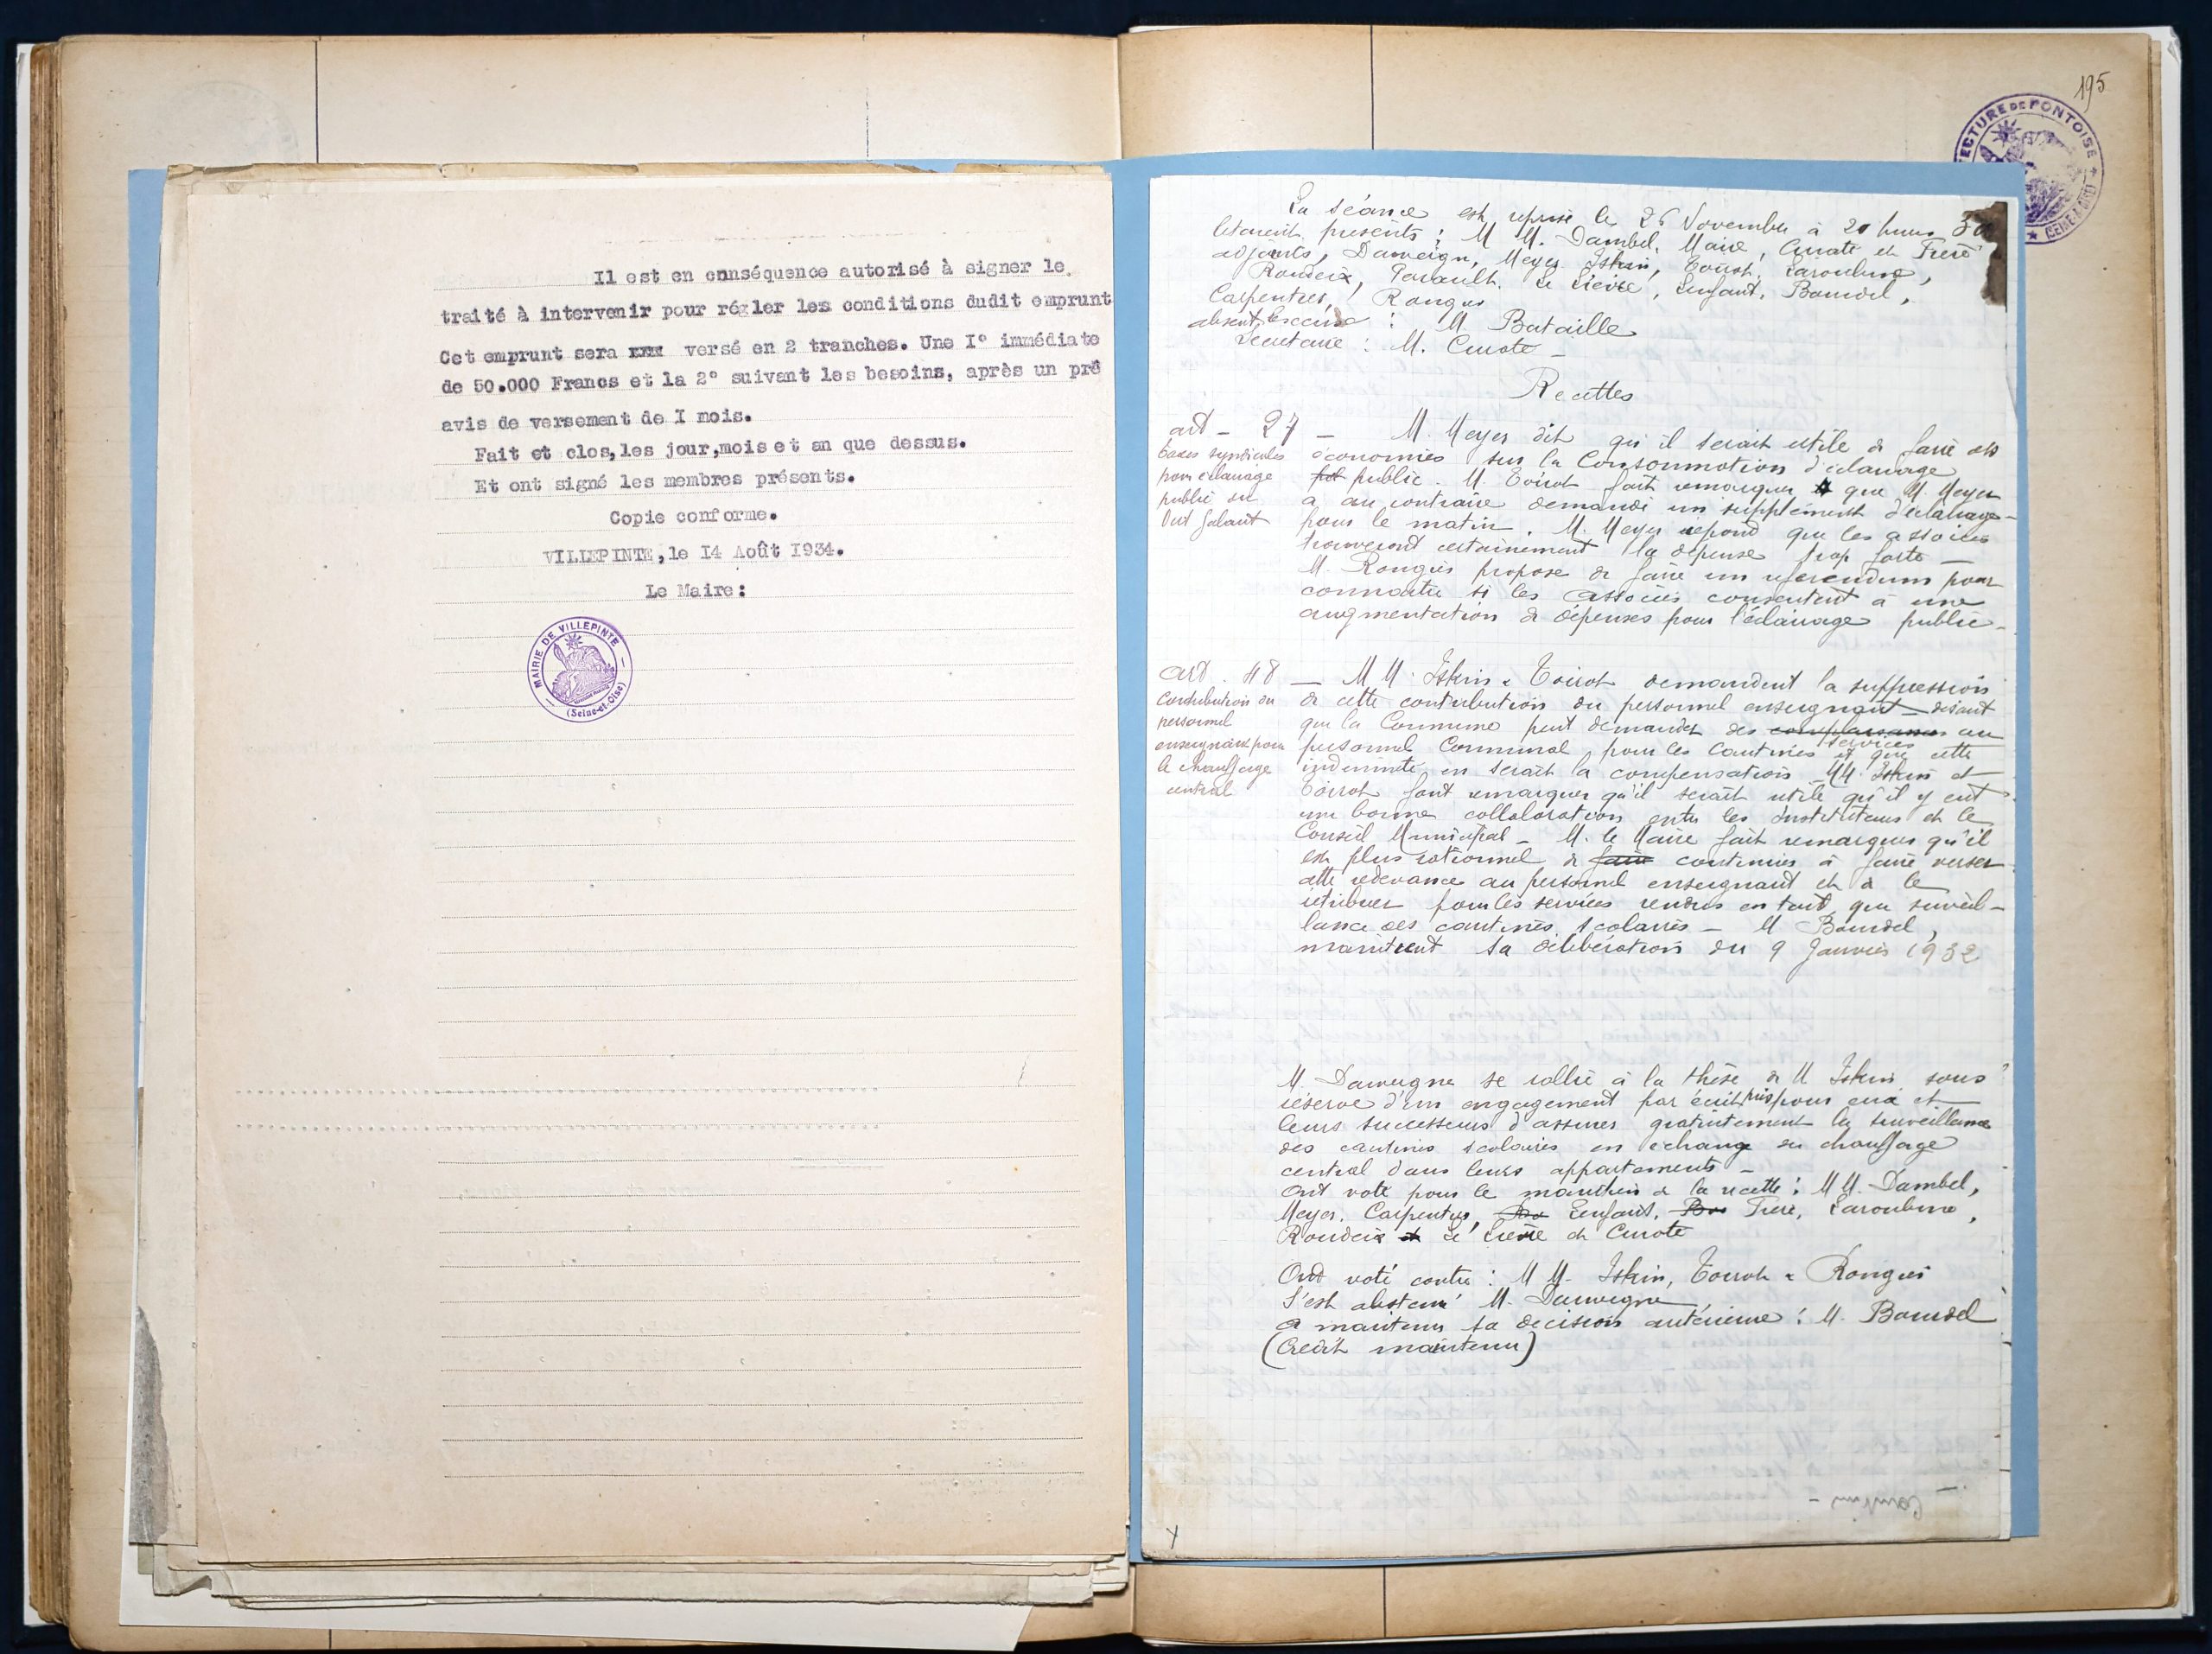 Il est en cnnséquence autorisé à signer le
traité à intervenir pour régler les conditions dudit emprunt
Cet emprunt sera xxxx versé en 2 tranches. Une I° immédiate
de 50.000 Francs et la 2° suivant les besoins, après un pré
avis de versement de I mois.
Fait et clos, les jour, mois et an que dessus.
Et ont signé les membres présents.
Copie conforme.
VILLEPINTE, le 14 Août 1934.
Le Maire:
MAIRIE DE VILLEPINTE
(Seine-et-Oise)
195
ECTURE DE PONTOISE
(SEINE & OISE)
La séance est reprise le 26 Novembre à 20 heures 30
étaient présents : M M. Dambel, Maire, Curote et Frère
adjoints, Dauvergne, Meyer, Iskin, Toirot, Laroubine,
Roudeix, Perault, Le Lièvre, Lenfant, Bourdel,
Carpentier, Rongier
absent excusé : M Bataille
Secrétaire : M. Curote -
Recettes
art - 27 - M. Meyer dit qu'il serait utile de faire des
taxes syndicales
pour éclairage
public du
Vert Galant
économies sur la Consommation d'éclairage
public. M. Toirot fait remarquer que M. Meyer
a au contraire demandé un supplément d'éclairage
pour le matin. M. Meyer répond que les associés
trouveront certainement la dépense trop forte -
M. Rongier propose de faire un referendum pour
connaître si les associés consentent à une
augmentation de dépenses pour l'éclairage public -
art. 48 - M M. Iskin & Toirot demandent la suppression
Contribution du
personnel
enseignant pour
le chauffage
central
de cette contribution du personnel enseignant - disant
que la Commune peut demander des complaisances au
services
personnel Communal, pour les cantines et que cette
indemnité en serait la compensation - MM. Iskin et
Toirot font remarquer qu'il serait utile qu'il y eut
une bonne collaboration entre les Instituteurs et le
Conseil Municipal - M. le Maire fait remarquer qu'il
est plus rationnel de faire continuer à faire verser
cette redevance au personnel enseignant et à le
rétribuer pour les services rendus en tant que surveil-
lance des cantines scolaires - M Bourdel,
maintient sa délibération du 9 Janvier 1932
M. Dauvergne se rallie à la thèse de M Iskin sous
réserve d'un engagement par écrit pris pour eux et
leurs successeurs d'assurer gratuitement la surveillance
des cantines scolaires en échange du chauffage
central dans leurs appartements -
Ont voté pour le maintien de la recette : M M. Dambel,
Meyer, Carpentier, Lenfant, Frère, Laroubine,
Roudeix Le Lièvre et Curote
Ont voté contre : M M. Iskin, Toirot & Rongier
S'est abstenu M. Dauvergne
A maintenu sa décision antérieure : M. Bourdel
(Crédit maintenu)